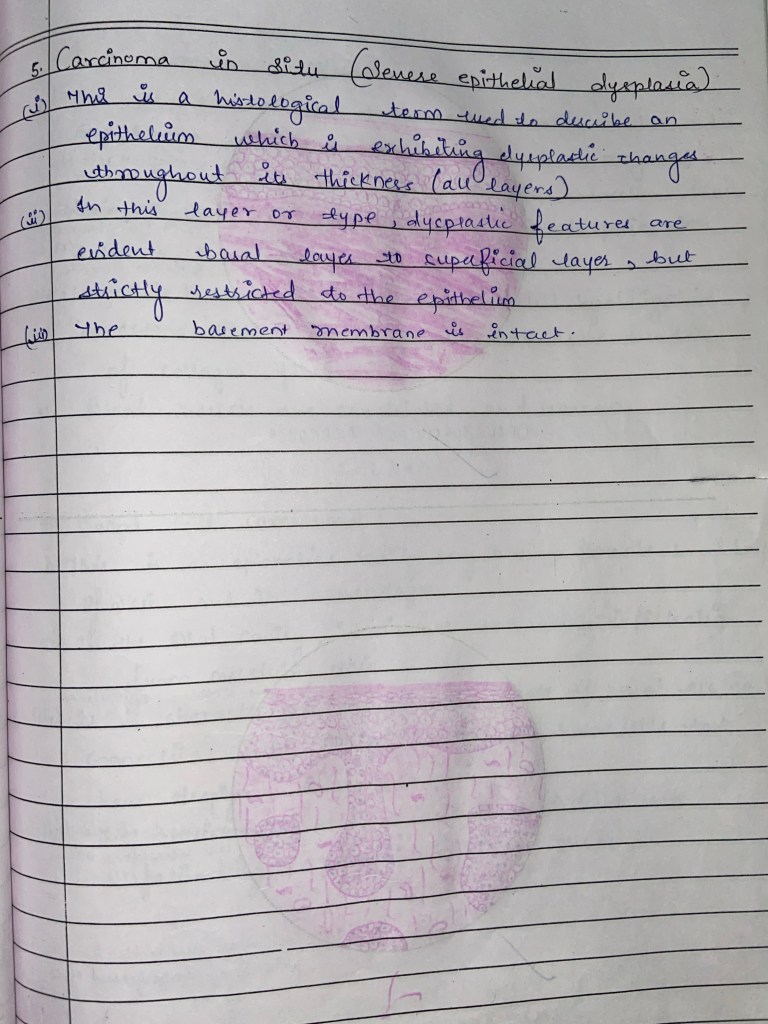 5. Carcinoma in situ (Severe epithelial dysplasia)
(i) This is a histological term used to describe an
epithelium which is exhibiting dysplastic changes
throughout its thickness (all layers)
(ii) In this layer or type, dysplastic features are
evident basal layer to superficial layer, but
strictly restricted to the epithelium
(iii) The basement membrane is intact.